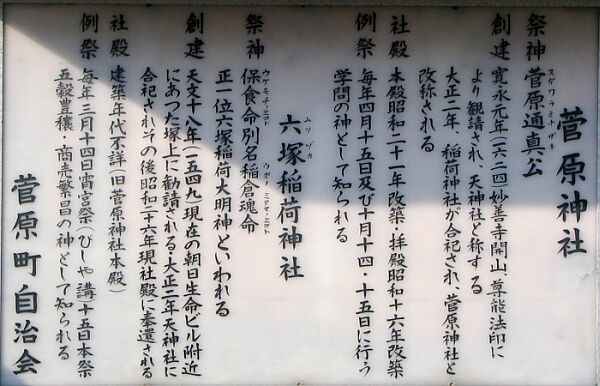 菅原神社
祭神 菅原道真公
スゲワラミチザネ
創建 寛永元年(一六二四)妙善寺開山、尊能法印に
より観請され、天神社と称する
大正二年、稲荷神社が合祀され、菅原神社と
改称される
社殿 本殿昭和二十一年改築・拝殿昭和十六年改築
例祭 毎年四月十五日及び十月十四・十五日に行う
学問の神として知られる
六塚稲荷神社
ムツヅカ
祭神 保食命別名稲倉魂命
ウケモチミコト ウガノミタマノミコト
正一位六塚稲荷大明神といわれる
創建 天文十八年(一五四九)現在の朝日生命ビル附近
にあった塚上に勧請される・大正二年天神社に
合祀されその後昭和二十六年現社殿に奉還される
社殿 建築年代不詳(旧菅原神社本殿)
例祭 毎年三月十四日宵宮祭(びしゃ講)十五日本祭
五穀豊穣・商売繁昌の神として知られる
菅原町自治会